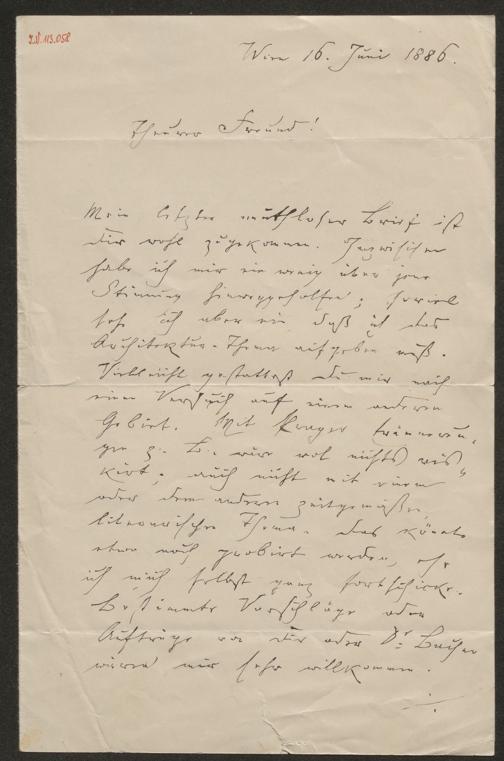 I.N. 113.058
Wien 16. Juni 1886.
Theurer Freund!
Mein letzter muthloser Brief ist
dir wohl zugekommen. Inzwischen
habe ich mir ein wenig über jene
Stimmung hinweggeholfen; soviel
seh' ich aber ein, daß ich das
Architektur-Thema aufgeben muß.
Vielleicht gestattest du mir noch
einen Versuch auf einem anderen
Gebiet. Mit Prager Erinnerun-
gen z. B. wäre wol nichts ris-
kirt; auch nicht mit einem
oder dem anderen zeitgemäßen,
literarischen Thema. Das könnte
etwa noch probirt werden, eh'
ich mich selbst ganz fortschicke.
Bestimmte Vorschläge oder
Aufträge von dir oder Dr. Bacher
wären mir sehr willkommen.